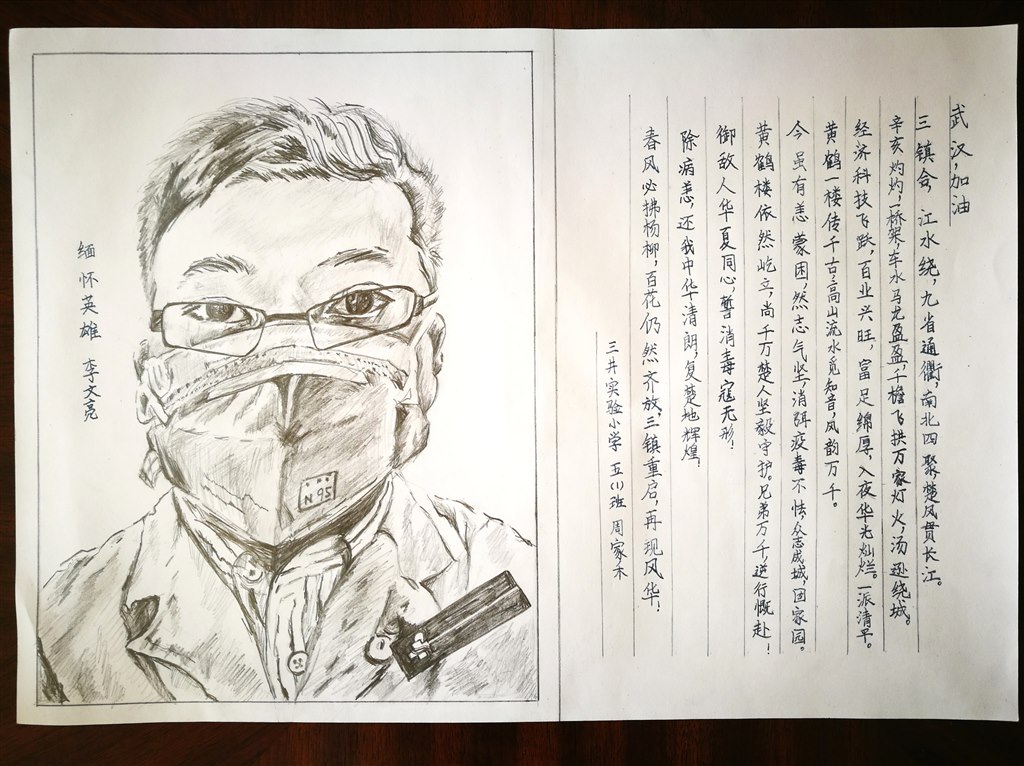 武汉,加油
三镇会,江水绕,九省通衢,南北四聚楚风贯长江。
辛亥灼灼,一桥架,车水马龙盈盈,千檐飞拱万家灯火,汤逊绕城。
经济科技飞跃,百业兴旺,富足绵厚,入夜华光灿烂。一派清平。
黄鹤一楼传千古,高山流水觅知音,风韵万千。
今虽有恙蒙困,然志气坚,消弭疫毒不怯,众志成城,固家园。
黄鹤楼依然屹立,尚千万楚人坚毅守护。兄弟万千,逆行慨赴!
御敌人华夏同心,誓消毒寇无形!
除病恙,还我中华清朗,复楚地辉煌!
春风必拂杨柳,百花仍然齐放,三镇重启,再现风华!
三井实验小学 五(1)班 周家木
缅怀英雄 李文亮
N95